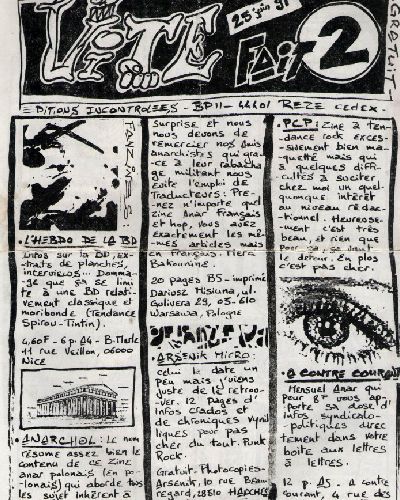 VITE
FAIT 2
25 juin 91
GRATUIT
EDITIONS INCONTROLEES - BP 11 - 44401 REZE Cedex -
FANZINES
L'HEBDO DE LA BD
Infos sur la BD, ex-
-traits de planches,
interviews... Domma-
-ge que ça se limi
te à une BD relati-
vement classique et
moribonde (Tendance
Spirou-Tintin).
4,60F - 6 p. A4 - B. Merle
11 rue Veillon, 06000
Nice
ANARCHOL: Le nom
résume assez bien le
contenu de ce zine
anar polonais (en po-
-lonais) qui aborde tous
les sujet inhérent à
surprise et nous
nous devons de
remercier nos amis
anarchistes qui gra-
ce à leur rabacha
ge militant nous
évite l'emploi de
Traducteurs: Pre-
nez n'importe quel
zine Anar Français
et hop, vous avez
exactement les mê-
-mes articles mais
en Français. Merci
Bakounine.
20 pages B5 - imprimé
Dariosz Misiuna, ul.
Gulivera 29, 03-610
Warsawa, Pologne
ARSENIK MICRO:
celui là date un
peu mais j'viens
juste de le retrou-
-ver. 12 pages d'
infos crados et
de chroniques vynil
liques pour pas
cher du tout. Punk
Rock.
Gratuit. Photocopies -
Arsenik, 10 rue Beau
regard, 28310
PCP: Zine à ten-
dance rock exces-
-sivement bien ma-
quetté mais qui
a quelques diffi-
cultés à susciter
chez moi un quel-
quonque intérêt
au niveau rédac-
-tionnel. Heureuse-
-ment c'est très
beau, et rien que
pour ça, je vaut
le détour. En plus
c'est pas cher.
A CONTRE COURANT
Mensuel Anar qui
pour 8F vous ap-
porte sa dose d'
infos syndicalo-
-politiques direc-
tement dans votre
boite aux lettres
à lettres.
12 p. A5 - A contre
courant, 4 rue des